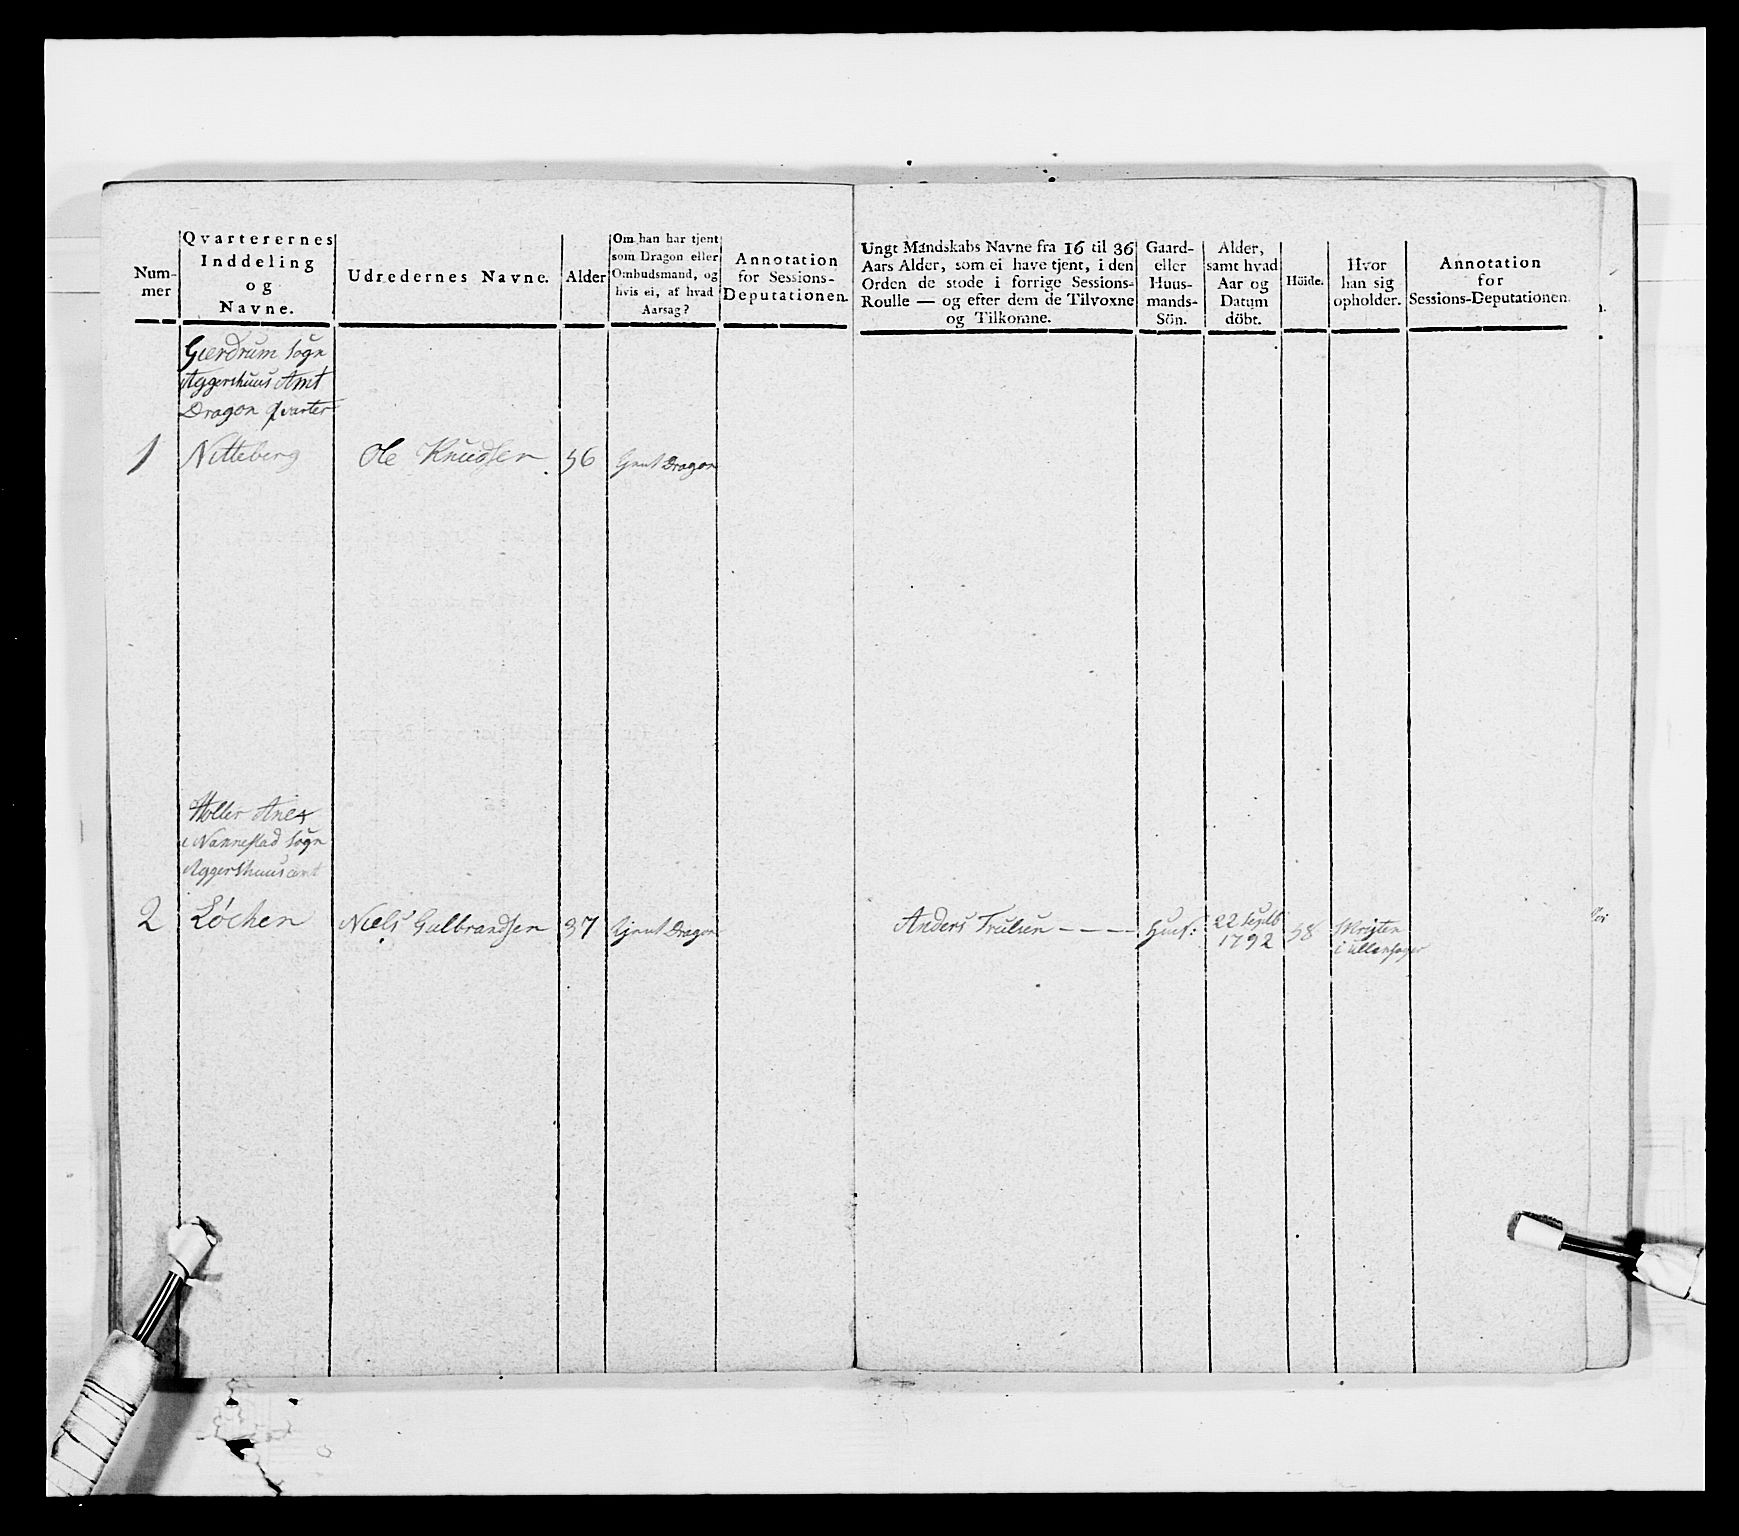 Num-
mer
Qvarterernes
Inddeling
og
Navne.
Udredernes Navne.
Alder
Om han har tjent
som Dragon eller
Ombudsmand, og
hvis ei, af hvad
Aarsag?
Annotation
for Sessions-
Deputationen.
Ungt Mandskabs Navne fra 16 til 36
Aars Alder, som ei have tjent, i den
Orden de stode i forrige Sessions-
Roulle — og efter dem de Tilvoxne
og Tilkomne.
Gaard-
eller
Huus-
mands-
Sön.
Alder,
samt hvad
Aar og
Datum
döbt.
Höide.
Hvor
han sig
opholder.
Annotation
for
Sessions-Deputationen.
Gierdrum Sogn
Aggershuus Amt
Dragon qvarter
1 Nitteberg Ole Knudsen 56 tjent Dragon
Holter Anex
i Nannestad Sogn
Aggershuus amt
2 Løchen Niels Gulbrandsen 37 tjent Dragon Anders Trulsen - - - - Huus: 22 Septb 1792 58
i Ullensager